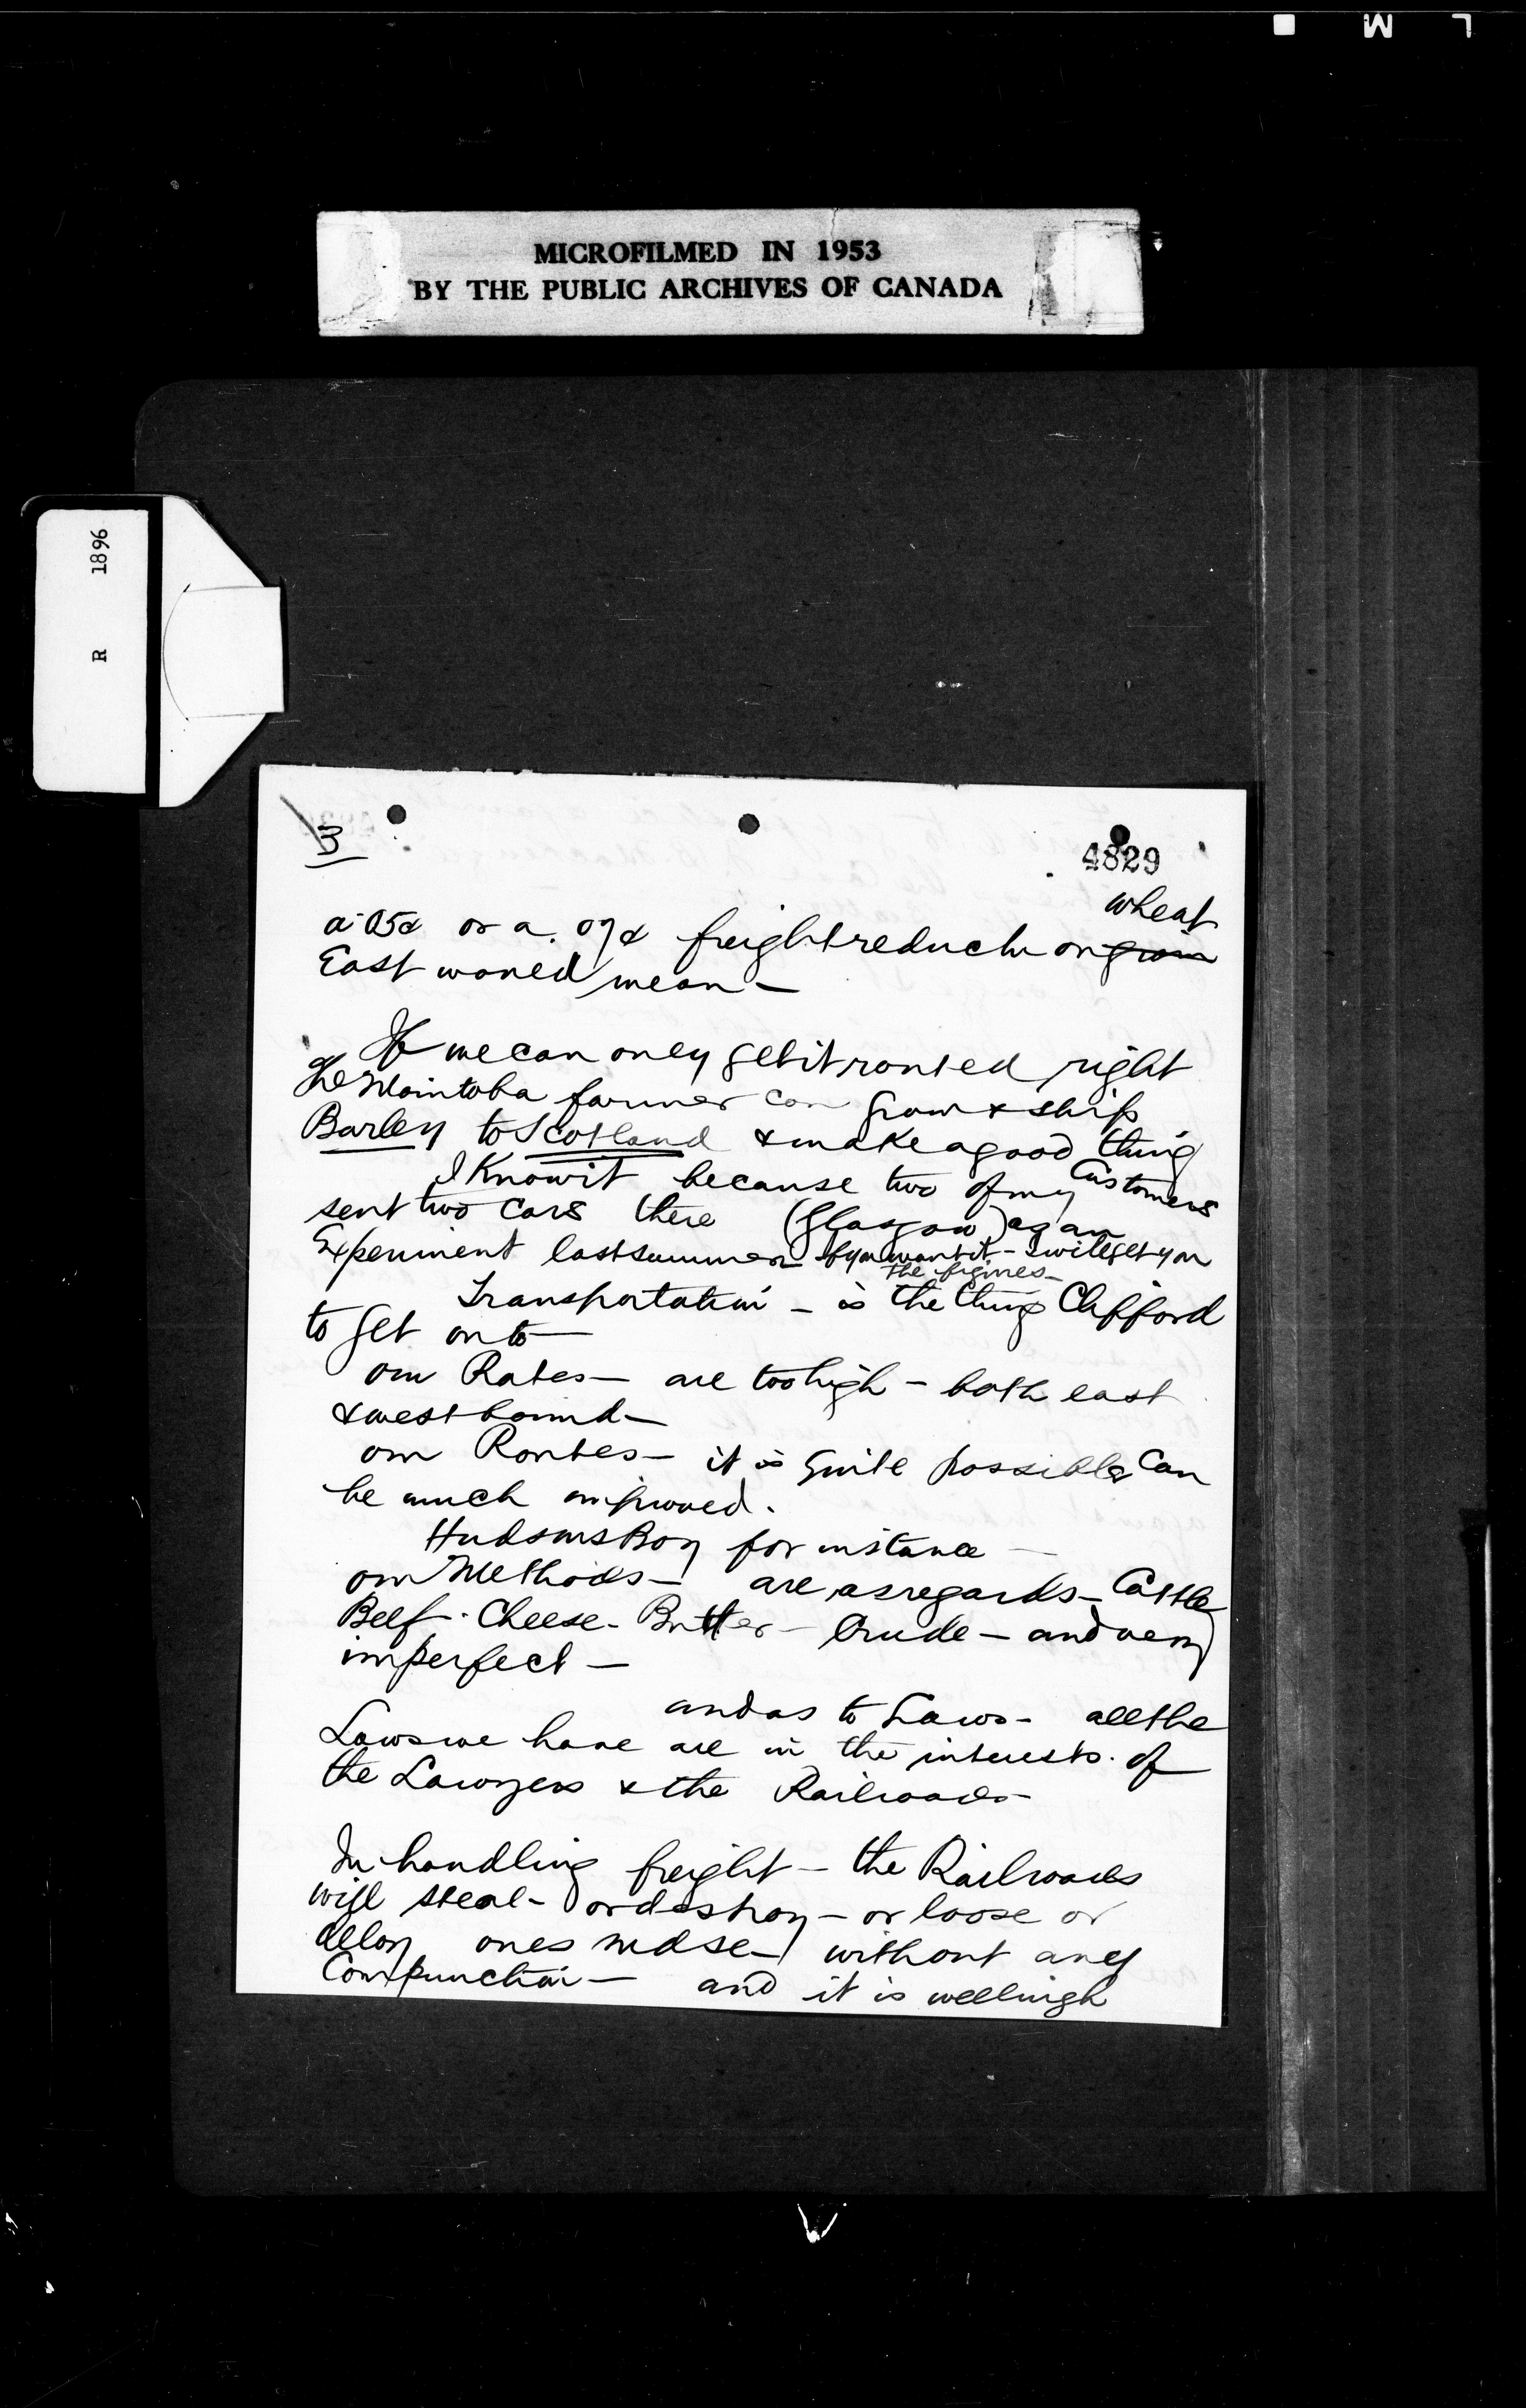 L M
MICROFILMED IN 1953
BY THE PUBLIC ARCHIVES OF CANADA
R 1896
3
4829
wheat
a .05¢ or a .07¢ freight reduction on grain
East would mean —
If we can only get it routed right
the Manitoba farmer can grow & ship
Barley to Scotland & make a good thing
I Know it because two of my Customers
sent two Cars there (Glasgow) as an
Experiment last summer if you want it - I will get you
the figures -
Transportation - is the thing Clifford
to get on to —
our Rates — are too high - both east
& west bound —
our Routes — it is quite possible can
be much improved.
Hudsons Bay for instance —
our Methods — are, as regards - Cattle
Beef - Cheese - Butter - Crude — and very
imperfect —
and as to Laws - all the
Laws we have are in the interests of
the Lawyers & the Railroads
In handling freight — the Railroads
will steal - or destroy - or loose or
delay ones mdse — without any
Compunction — and it is wellnigh